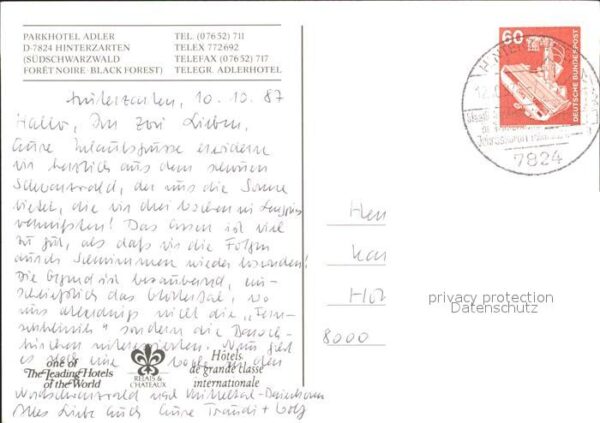 PARKHOTEL ADLER
D-7824 HINTERZARTEN
(SÜDSCHWARZWALD
FORÊT NOIRE · BLACK FOREST)
TEL. (07652) 711
TELEX 772692
TELEFAX (07652) 717
TELEGR. ADLERHOTEL
60
DEUTSCHE BUNDESPOST
7824
Hinterzarten, 10.10.87
Hallo, Ihr zwei Lieben,
Eure Urlaubsgrüsse erwidern
wir herzlich aus dem schönen
Schwarzwald, der uns die Sonne
bietet, die wir drei Wochen in
vermißten! Das Essen ist viel
zu gut, als daß wir die Folgen
durch Schwimmen wieder
Die Gegend ist bezaubernd, ein-
schließlich das Glottertal, wo
uns allerdings nicht die „
" sondern die Barock-
kirchen interessierten. Nun geht
es noch eine Woche in den
Nordschwarzwald nach Mitteltal-Baiersbronn
Alles Liebe Euch Eure Traudi + Wolf
Herr
8000
one of
The Leading Hotels
of the World
RELAIS &
CHATEAUX
Hôtels
de grande classe
internationale
privacy protection
Datenschutz